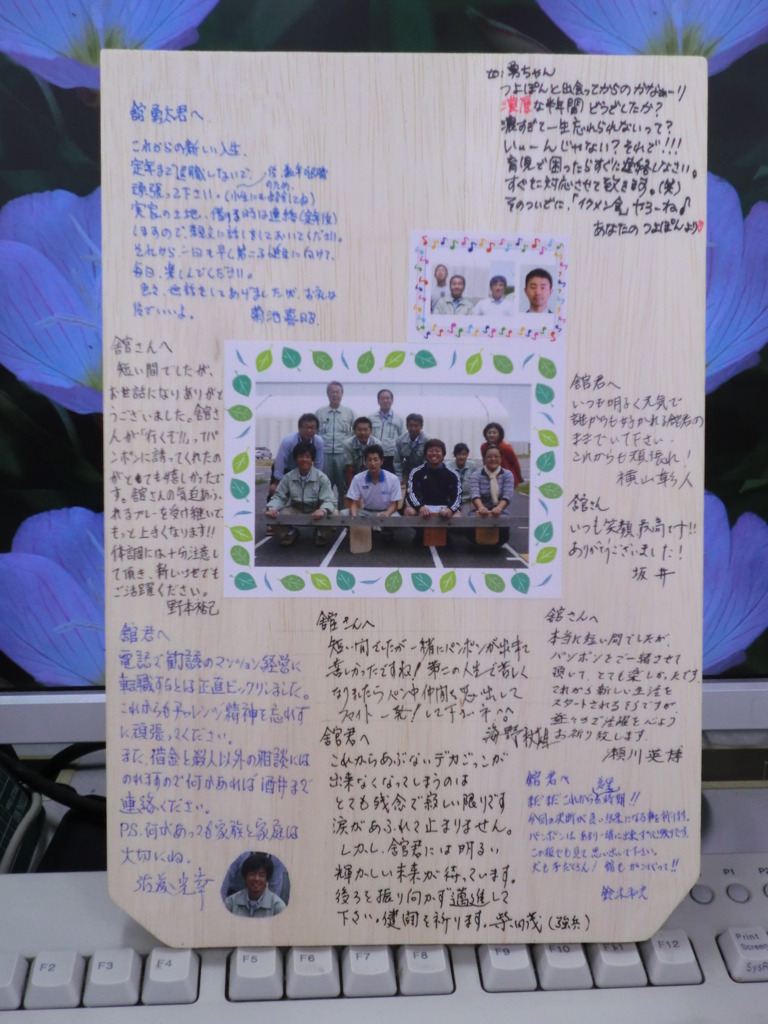 舘勇太君へ
これからの新しい人生、
定年まで退職しないで、
頑張って下さい。
実家の土地、借りる時は連絡(定年後)
しますので、親父に話しをしておいてください。
それから一日も早く第二子誕生に向けて、
毎日、楽しんでください。
色々、世話をしてありましたが、お礼は
後でいいよ。
菊池喜昭
to:勇ちゃん
つよぽんと出会ってからのかなぁーり
濃厚な半年間どうでしたか?
濃すぎて一生忘れられないって?
いぃーんじゃない?それで!!!
育児で困ったらすぐに連絡しなさい。
すぐに対応させて頂きます。(笑)
そのついでに、「イクメン会」やろーね♪
あなたのつよぽんより
舘さんへ
短い間でしたが、
お世話になりありがと
うございました。舘さ
んが「行くぞ!!」ってパ
ンポンに誘ってくれたの
がとても嬉しかったで
す。舘さんの気迫あふ
れるプレーを受け継いで
もっと上手くなります!!
体調には十分注意し
て頂き、新しい所でも
ご活躍ください。
野本裕己
舘君へ
いつも明るく元気で
誰からも好かれる舘君の
ままでいて下さい。
これからも頑張れ!
横山幹人
舘さん
いつも笑顔最高です!!
ありがとうございました!
坂井
舘君へ
電話で勧誘のマンション経営に
転職するとは正直ビックリしました。
これからもチャレンジ精神を忘れず
に頑張ってください。
また、借金と殺人以外の相談には
のれますので何かあれば酒井まで
連絡ください。
P.S.何があっても家族と家庭は
大切にね。
舘さんへ
短い間でしたが一緒にパンポンが出来て
楽しかったですね!第二の人生で苦しく
なりましたらパンポン仲間を思い出して
スマイト一発!して下さいネ^^
海野
舘君へ
これからあぶないデカごっこが
出来なくなってしまうのは
とても残念で寂しい限りです
涙があふれて止まりません。
しかし、舘君には明るい
輝かしい未来が待っています。
後ろを振り向かず邁進して
下さい。健闘を祈ります。柴田茂(強兵)
舘さんへ
本当に短い間でしたが、
パンポンをご一緒させて
頂いて、とても楽しかったです。
これから新しい生活を
スタートされるそうですが、
益々のご活躍を心より
お祈り致します。
瀬川英博
舘君へ
まだまだこれから
パンポンは
この板でも見て思い出して下さい。
鈴木
F2 F3 F4 F5 F6 F7 F8 F9 F10 F11 F12
Print
Screen
SysR
P1 P2